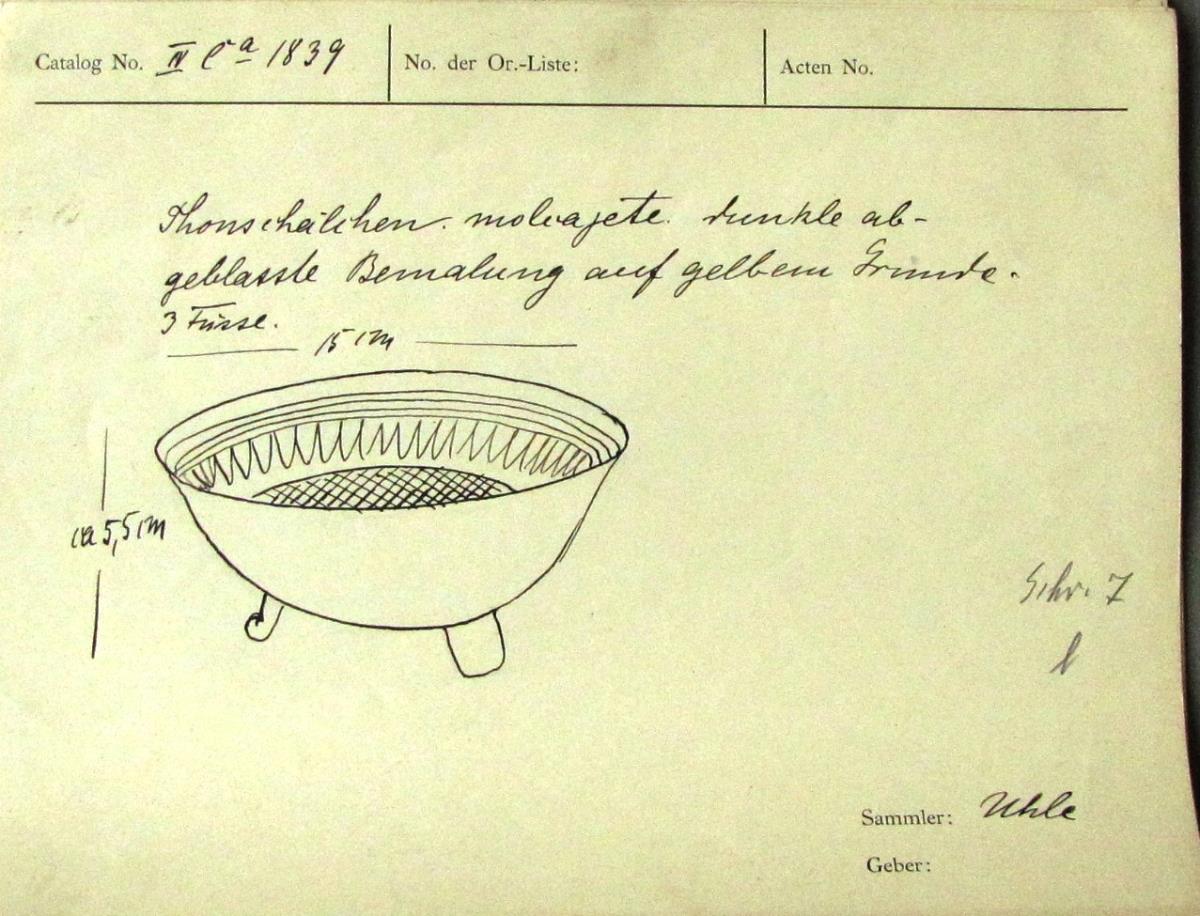 Catalog No. IV Ca 1839
No. der Or.-Liste:
Acten No.
Thonschälchen. molcajete. dunkle ab-
geblasste Bemalung auf gelbem Grunde.
3 Füsse.
15 cm
ca 5,5 cm
Schr. 7
l
Sammler: Uhle
Geber: